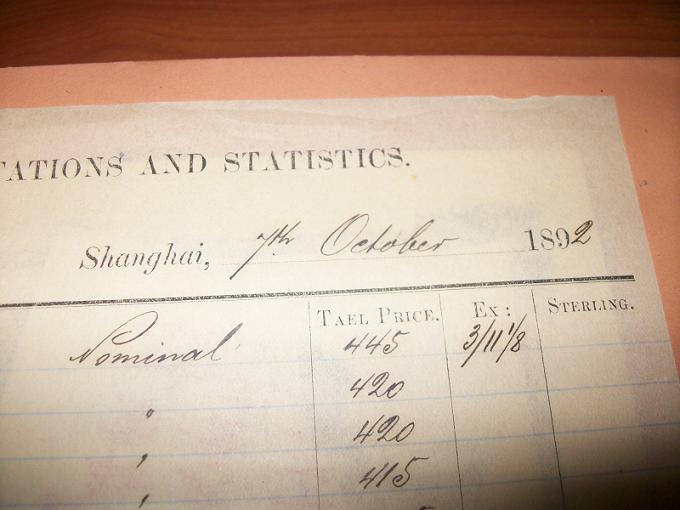 TATIONS AND STATISTICS.
Shanghai, 7th October 1892
TAEL PRICE. EX: STERLING.
Nominal 445 3/11 1/8
" 420
" 420
" 415
"